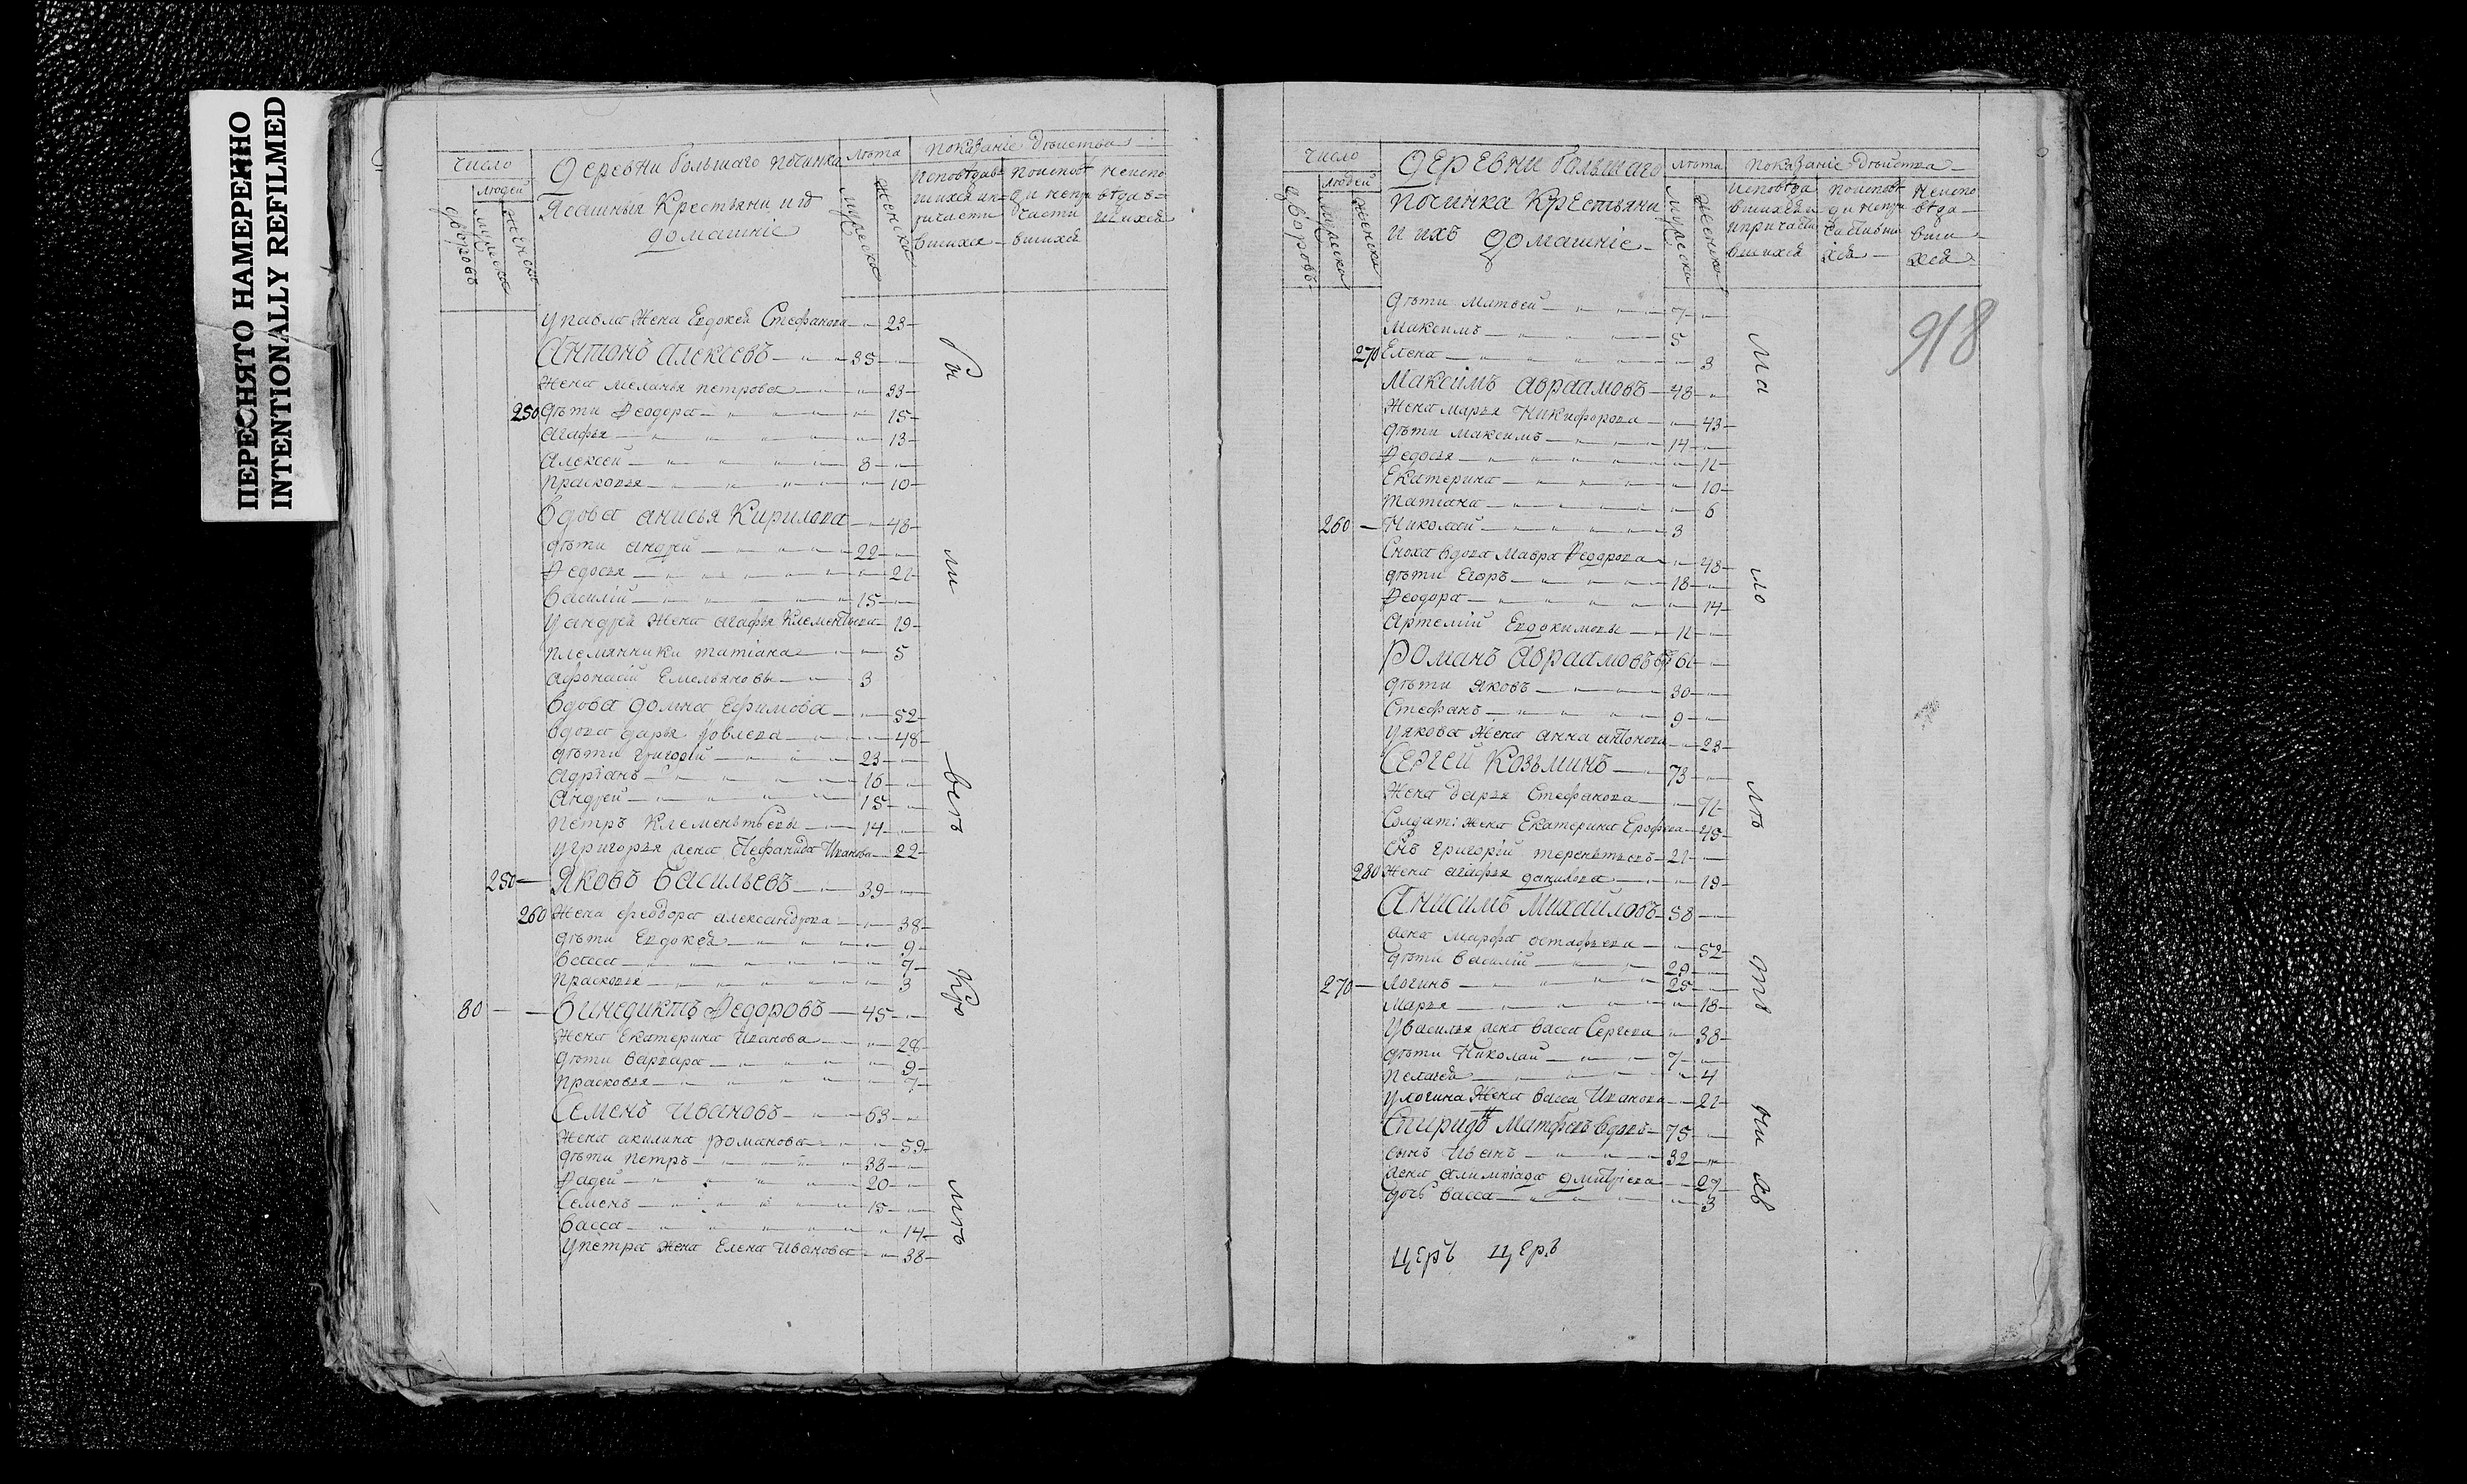 ПЕРЕСНЯТО НАМЕРЕННО
INTENTIONALLY REFILMED
число
людей
дворовъ
мужеска
женска
Деревни большаго починка
Ясашныя Крестьяни и ихъ
домашніе
лѣта
мужеска
женска
показаніе Дѣиства
у павла жена Евдокея Стефанова 23
Антонъ Алексеевъ 35
жена меланья петрова 33
250 дѣти Ѳеодора 15
агафья 13
алексей 8
прасковья 10
вдова анисья Кирилова 48
дѣти андрей 22
Ѳедосья 21
василій 15
у андрея жена агафья Клементьева 19
племянники татіана 5
афонасій Емельяновы 3
вдова домна Ефимова 52
вдова дарья 48
дѣти григорій 23
адріанъ 16
андрей 15
петръ Клементьевы 14
у григорья жена Иванова 22
250 Яковъ Васильевъ 39
260 жена феодора александрова 38
дѣти Евдокея 9
васса 7
прасковья 3
80 Винедиктъ Ѳедоровъ 45
жена Екатерина Иванова 28
дѣти варвара 9
прасковья 7
Семенъ Ивановъ 63
жена акилина романова 59
дѣти петръ 38
Ѳадей 20
Семенъ 15
васса 14
у петра жена Елена Иванова 38
число
людей
дворовъ
мужеска
женска
Деревни большаго
починка Крестьяни
и ихъ домашніе
лѣта
мужеска
женска
показаніе Дѣиства
918
дѣти матвей 7
максимъ 5
270 Елена 3
Максимъ Авраамовъ 48
жена марья Никифорова 43
дѣти максимъ 14
Ѳедосья 12
Екатерина 10
татіана 6
260 Николай 3
Сноха вдова мавра Ѳеодорова 48
дѣти Егоръ 18
Ѳеодора 14
артемій Евдокимовы 12
Романъ Авраамовъ 62
дѣти яковъ 30
Стефанъ 9
у якова жена анна антонова 23
Сергей Козьминъ 73
жена дарья Стефанова 72
Солдат: жена Екатерина Ерофеева 45
Снъ григорій терентьевъ 21
280 жена агафья данилова 19
Анисимъ Михайловъ 58
жена марфа остафьева 52
дѣти василій 29
270 логинъ 25
марья 18
у василья жена васса Сергеева 38
дѣти Николай 7
пелагея 4
у логина жена васса Иванова 21
Спиридо Матфеевъ вдовъ 75
сынъ Иванъ 32
жена алимпіада дмитріева 27
дочь васса 3
церъ церъ